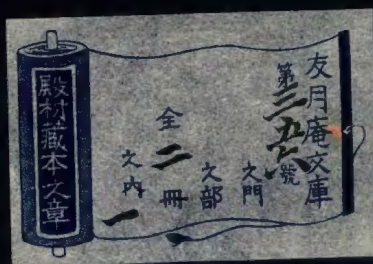 友月庵文庫
第三五六號
文門
文部
全二冊
文内一
殿村藏本文章